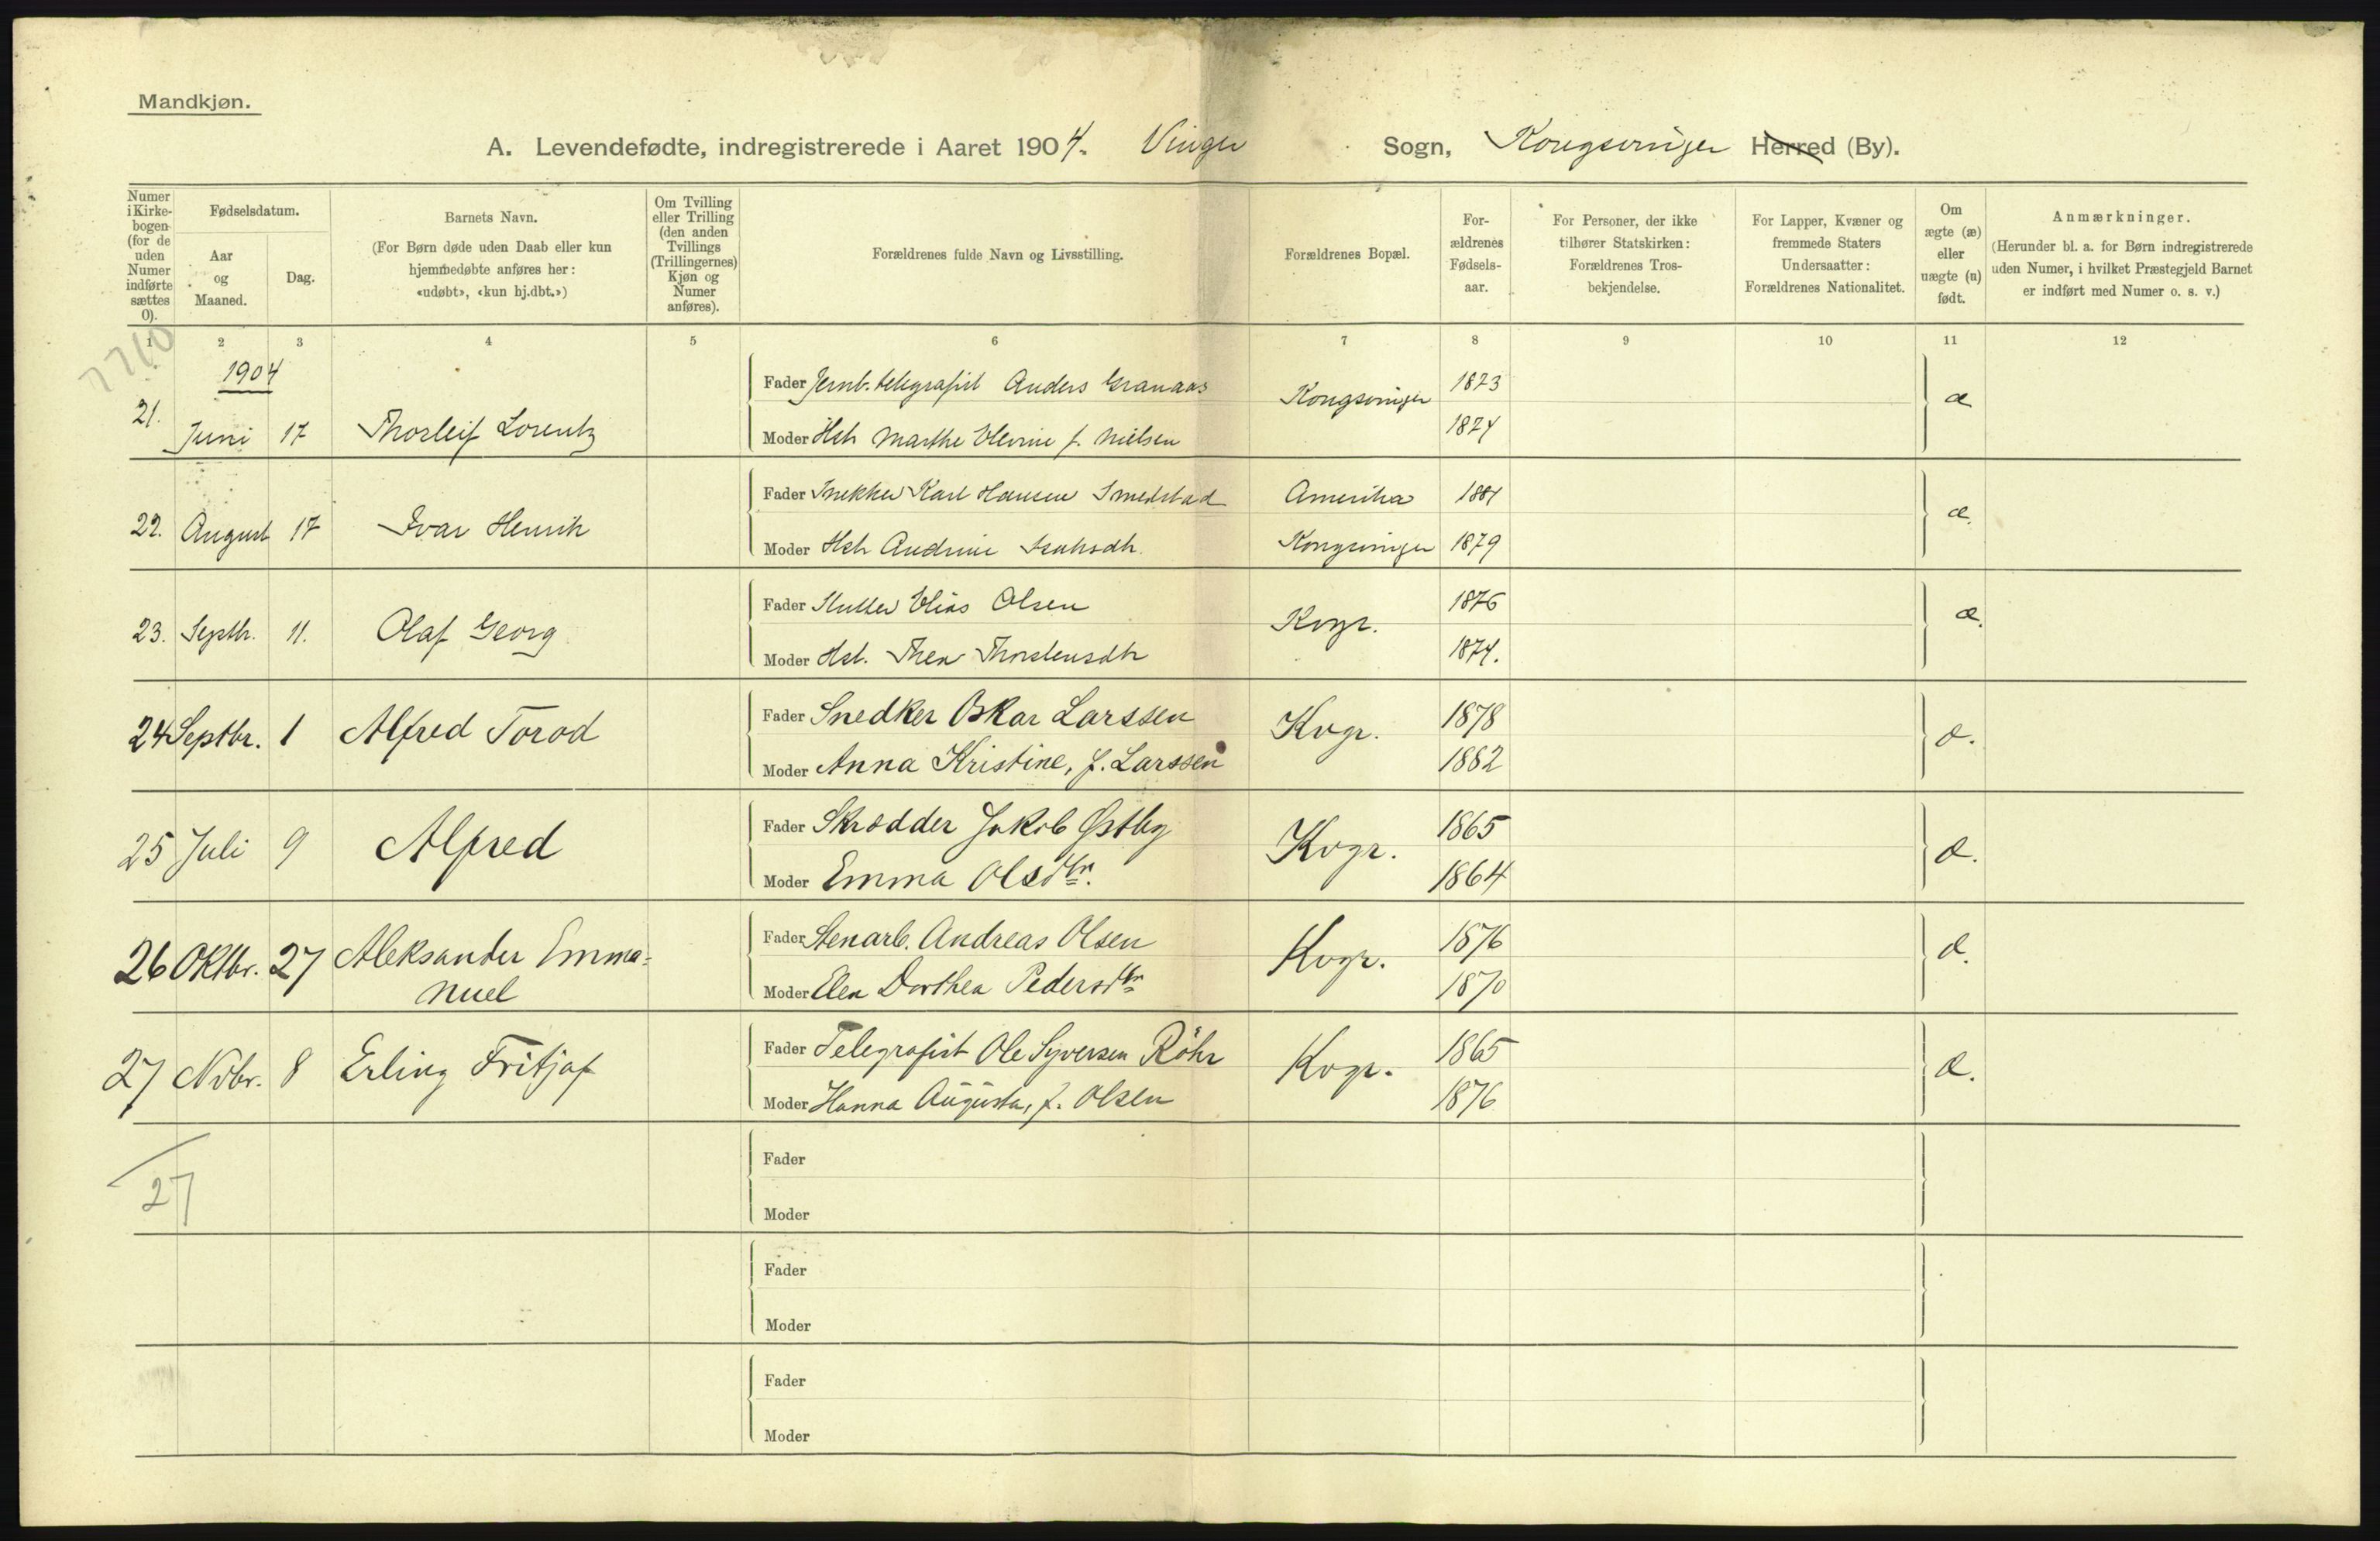 Mandkjøn.
A. Levendefødte, indregistrerede i Aaret 1904. Vinger Sogn, Kongsvinger Herred (By).
Numer i Kirkebogen (for de uden Numer indførte sættes 0).
Fødselsdatum.
Aar og Maaned.
Dag.
Barnets Navn.
(For Børn døde uden Daab eller kun hjemmedøbte anføres her: «udøbt», «kun hj.dbt.»)
Om Tvilling eller Trilling (den anden Tvillings (Trillingernes) Kjøn og Numer anføres).
Forældrenes fulde Navn og Livsstilling.
Forældrenes Bopæl.
Forældrenes Fødselsaar.
For Personer, der ikke tilhører Statskirken: Forældrenes Trosbekjendelse.
For Lapper, Kvæner og fremmede Staters Undersaatter: Forældrenes Nationalitet.
Om ægte (æ) eller uægte (u) født.
Anmærkninger.
(Herunder bl. a. for Børn indregistrerede uden Numer, i hvilket Præstegjeld Barnet er indført med Numer o. s. v.)
1 2 3 4 5 6 7 8 9 10 11 12
7710
1904
Fader Jernb. telegrafist Anders Granaas Kongsvinger 1873
21. Juni 17 Thorleif Lorentz æ
Moder Hst Marthe Elevine f. Nielsen 1874
Fader Snekker Karl Hansen Smedstad Amerika 1881
22. August 17 Ivar Henrik æ.
Moder Hst Andrine Kongsvinger 1879
Fader Elias Olsen 1876
23. Septbr. 11. Olaf Georg Kvgr. æ.
Moder Hst. Thea Thorstensdtr 1874.
Fader Snedker Oskar Larssen 1878
24 Septbr. 1 Alfred Torod Kvgr. æ.
Moder Anna Kristine, f. Larssen 1882
Fader Skrædder Jakob Østby 1865
25 Juli 9 Alfred Kvgr. æ.
Moder Emma Olsdtr. 1864
Fader Stenarb. Andreas Olsen 1876
26 Oktbr. 27 Aleksander Emma=
nuel Kvgr. æ.
Moder Elen Dorthea Pedersdtr 1870
Fader Telegrafist Ole Syversen Röhr 1865
27 Nvbr. 8 Erling Fritjof Kvgr. æ.
Moder Hanna Augusta, f. Olsen 1876
Fader
27
Moder
Fader
Moder
Fader
Moder